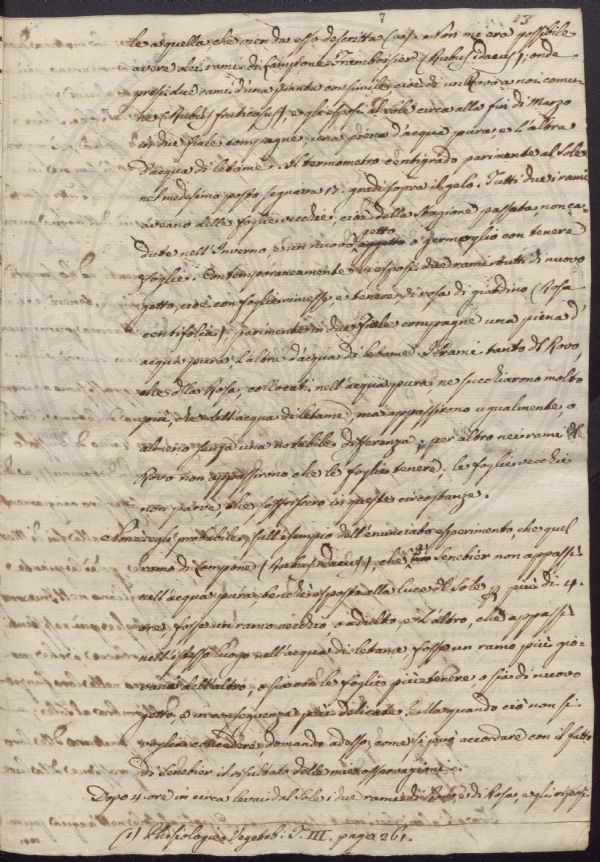 7
33
le a quella che menda esso descritta (1). Non mi era possibile
avere dei rami di Lampone Framboisier (Rubus Idaeus); onde
presi due rami d'una pianta consimile, cioè di un Rovo a noi comu-
ne (Rubus fruticosus), e gli esposi al Sole circa alla fin di Marzo
in due fiale compagne, una piena d'acqua pura, e l'altra
d'acqua di letame. Il termometro centigrado parimente al Sole
nel medesimo posto segnava 17. gradi sopra il gelo. Tutti due i rami
aveano delle foglie vecchie, cioè della Stagione passata, non ca-
getto
dute nell'Inverno, e un nuovo oggetto o germoglio con tenere
foglie. Contemporaneamente esposi due rami tutti di nuovo
getto, cioè con foglie rimesse e tenere di rosa di giardino (Rosa
centifolia), parimente in due fiale compagne una piena d'
acqua pura, l'altra d'acqua di letame. I rami tanto del Rovo,
che della Rosa, collocati nell'acqua pura ne succhiarono molto
più, che dell'acqua di letame, ma appassirono ugualmente o
almeno senza una notabile differenza; per altro nei rami del
Rovo non appassirono che le foglie tenere; le foglie vecchie
non parve che soffrissero in queste circostanze.
Non è così probabile, sull'esempio dell'enunciato esperimento, che quel
ramo di Lampone (Rubus Idaeus), che Senebier non appassì
nell'acqua pura, benchè esposto alla luce del Sole per più di 4.
ore, fosse un ramo vecchio o adulto, e l'altro, che appassì
nell'istesso luogo nell'acqua di letame fosse un ramo più gio-
vane dell'altro, o sia con le foglie più tenere o sia di nuovo
getto, e in conseguenza più delicate. E alla quando ciò non si
voglia concedere, domando adesso, come si può accordare con il fatto
di Senebier il risultato delle mie osservazioni.
Dopo 4. ore in circa levai dal Sole i due rami di Rovo e di Rosa, e gli esposi
(1) Phisiologie Vegetab. T. III. page 261.